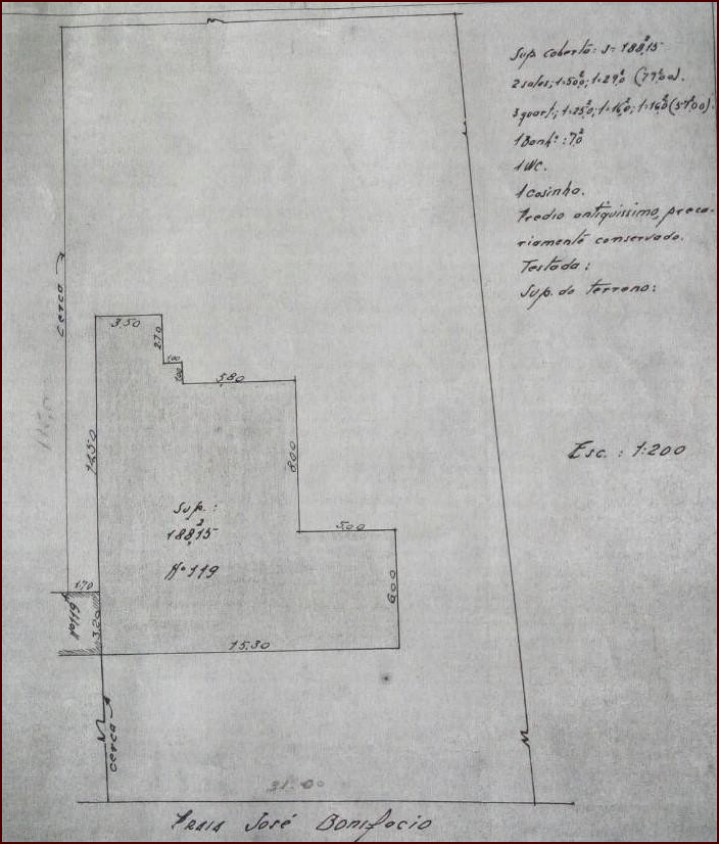 Sup. coberta: S = 188,15²
2 salas; 1=50,0²; 1=27,0² (77,00²).
3 quart.; 1=25,0²; 1=16,0²; 1=16,0² (57,00²).
1 Banhº: 7,0²
1 WC.
1 cosinha.
Predio antiquissimo, preca-
riamente conservado.
Testada:
Sup. do terreno:
cerca
3,50
2,70
1,00
1,00
5,80
14,50
8,00
Esc.: 1:200
Sup.:
188,15²
5,00
Nº 119
6,00
1,70
Nº 119
3,20
15,30
cerca
31,00
Praia José Bonifacio